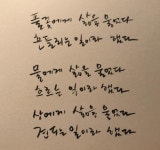 풀꽃에게 삶을 물었다
흔들리는 일이라 했다
물에게 삶을 물었다
흐르는 일이라 했다
산에게 삶을 물었다
견디는 일이라 했다